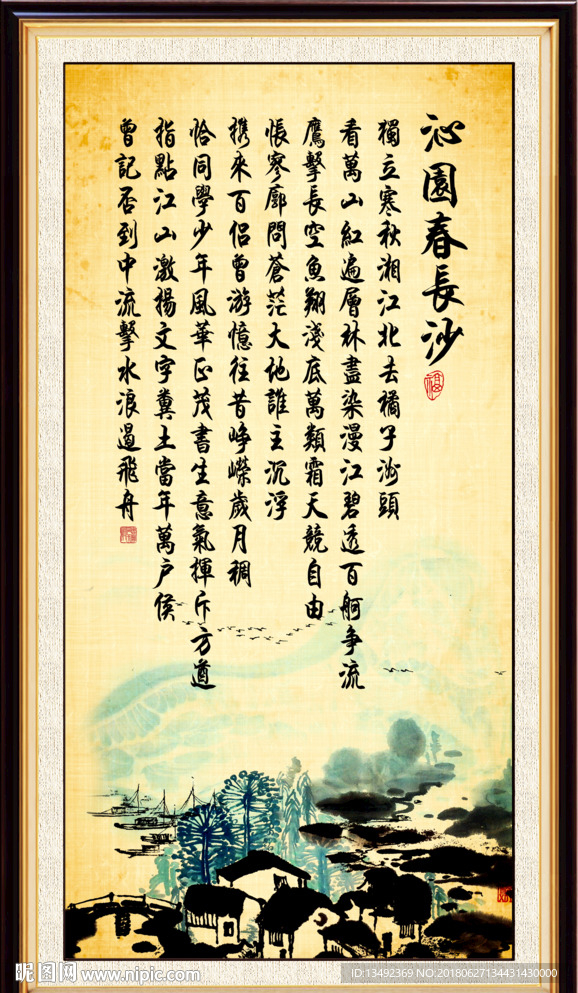 沁園春長沙
獨立寒秋湘江北去橘子洲頭
看萬山紅遍層林盡染漫江碧透百舸争流
鷹擊長空魚翔淺底萬類霜天競自由
悵寥廓問蒼茫大地誰主沉浮
携來百侣曾游憶往昔峥嶸歲月稠
恰同學少年風華正茂書生意氣揮斥方遒
指點江山激揚文字糞土當年萬户侯
曾記否到中流擊水浪遏飛舟
昵图网 www.nipic.com
ID:13492369 NO.20180627134431430000